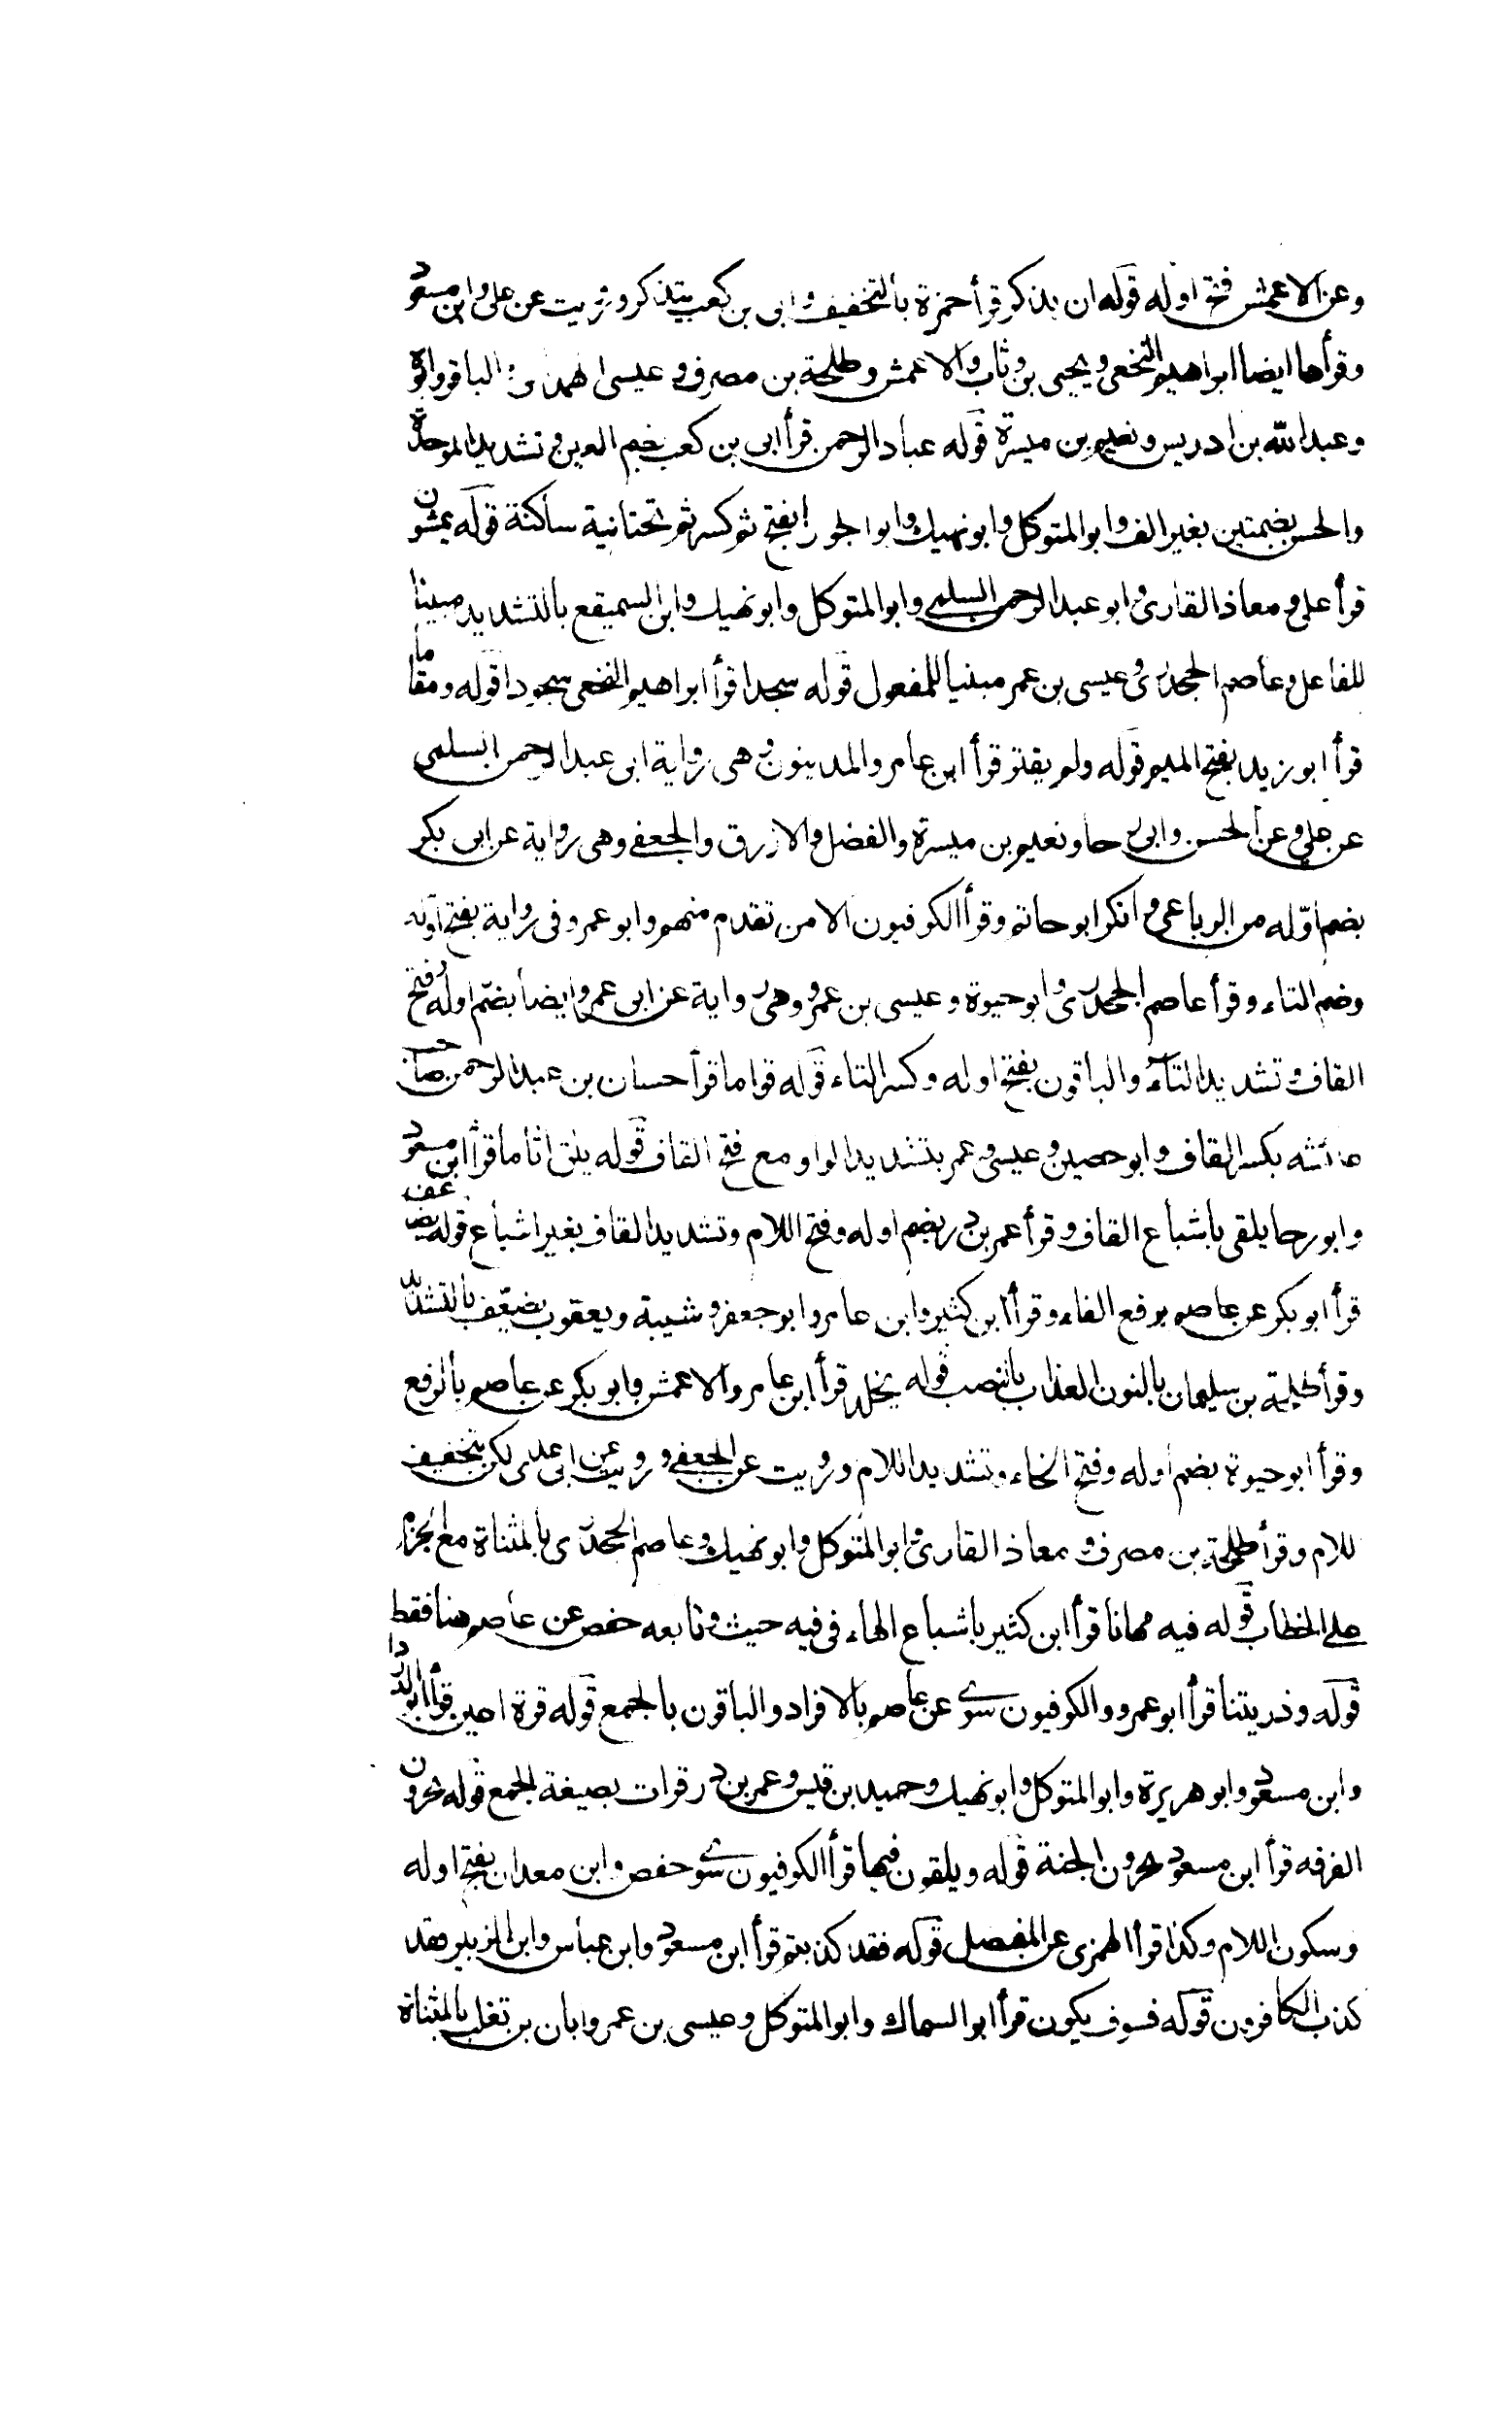 وعن الاعمش فتح اوله قوله ان يذكر قرأ حمزة بالتخفيف وابى بن كعب يتذكر ورويت عن على وابن مسعود
وقرأها ايضا ابراهيم النخعى ويحيى بن وثاب والاعمش وطلحة بن مصرف وعيسى الهمدانى والباقر وابوه
وعبد الله بن ادريس ونعيم بن ميسرة قوله عباد الرحمن قرأ ابى بن كعب بضم العين وتشديد الموحدة
والحسن بضمتين بغير الف وابو المتوكل وابو نهيك وابو الجوزا بفتح ثم كسر ثم تحتانية ساكنة قوله يمشون
قرأ على ومعاذ القارى وابو عبد الرحمن السلمى وابو المتوكل وابو نهيك وابن السميقع بالتشديد مبنيا
للفاعل وعاصم الجحدرى وعيسى بن عمر مبنيا للمفعول قوله سجدا قرأ ابراهيم النخعى سجودا قوله ومقاما
قرأ ابو زيد بفتح الميم قوله ولم يقتر قرأ ابن عامر والمدينون وهى رواية ابى عبد الرحمن السلمى
عن على وعن الحسن وابى رجا ونعيم بن ميسرة والفضل والازرق والجعفى وهى رواية عن ابى بكر
بضم اوّله من الرباعى وانكر ابو حاتم وقرأ الكوفيون الا من تقدم منهم وابو عمرو فى رواية بفتح اوله
وضم التاء وقرأ عاصم الجحدرى وابو حيوة وعيسى بن عمر وهى رواية عن ابى عمرو ايضا بضم اوله وفتح
القاف وتشديد التاء والباقون بفتح اوله وكسر التاء قوله قواما قرأ حسان بن عبد الرحمن صاحب
عائشه بكسر القاف وابو حصين وعيسى وعمر بتشديد الواو مع فتح القاف قوله يلق اثاما قرأ ابن مسعود
وابو رجا يلقى باشباع القاف وقرأ عمر بن ذر بضم اوله وفتح اللام وتشديد القاف بغير اشباع قوله يضاعف
قرأ ابو بكر عن عاصم برفع الفاء وقرأ ابن كثير وابن عامر وابو جعفر وشيبة ويعقوب يضعّف بالتشديد
وقرأ طلحة بن سليمان بالنون العذاب بالنصب قوله يخلد قرأ ابن عامر والاعمش وابو بكر عن عاصم بالرفع
وقرأ ابو حيوة بضم اوله وفتح الخاء وتشديد اللام ورويت عن الجعفى ورويت عن ابى على لكن بتخفيف
للام وقرأ طلحة بن مصرف ومعاذ القارى وابو المتوكل وابو نهيك وعاصم الجحدرى بالمثناة مع الجزم
على الخطاب قوله فيه مهانا قرأ ابن كثير باشباع الهاء فى فيه حيث وتابعه حفص عن عاصم هنا فقط
قوله وذريتنا قرأ ابو عمرو والكوفيون سوى عن عاصم بالافراد والباقون بالجمع قوله قرة اعين قرأ ابو الدردا
وابن مسعود وابو هريرة وابو المتوكل وابو نهيك وحميد بن قيس وعمر بن ذر قرات بصيغة الجمع قوله يجزون
الغرفه قرأ ابن مسعود يجزون الجنة قوله ويلقون فيها قرأ الكوفيون سوى حفص وابن معدان بفتح اوله
وسكون اللام وكذا قرأ النمزى عن المفضل قوله فقد كذبتم قرأ ابن مسعود وابن عباس وابن الزبير فقد
كذب الكافرون قوله فسوف يكون قرأ ابو السماك وابو المتوكل وعيسى بن عمر وابان بن تغلب بالمثناة